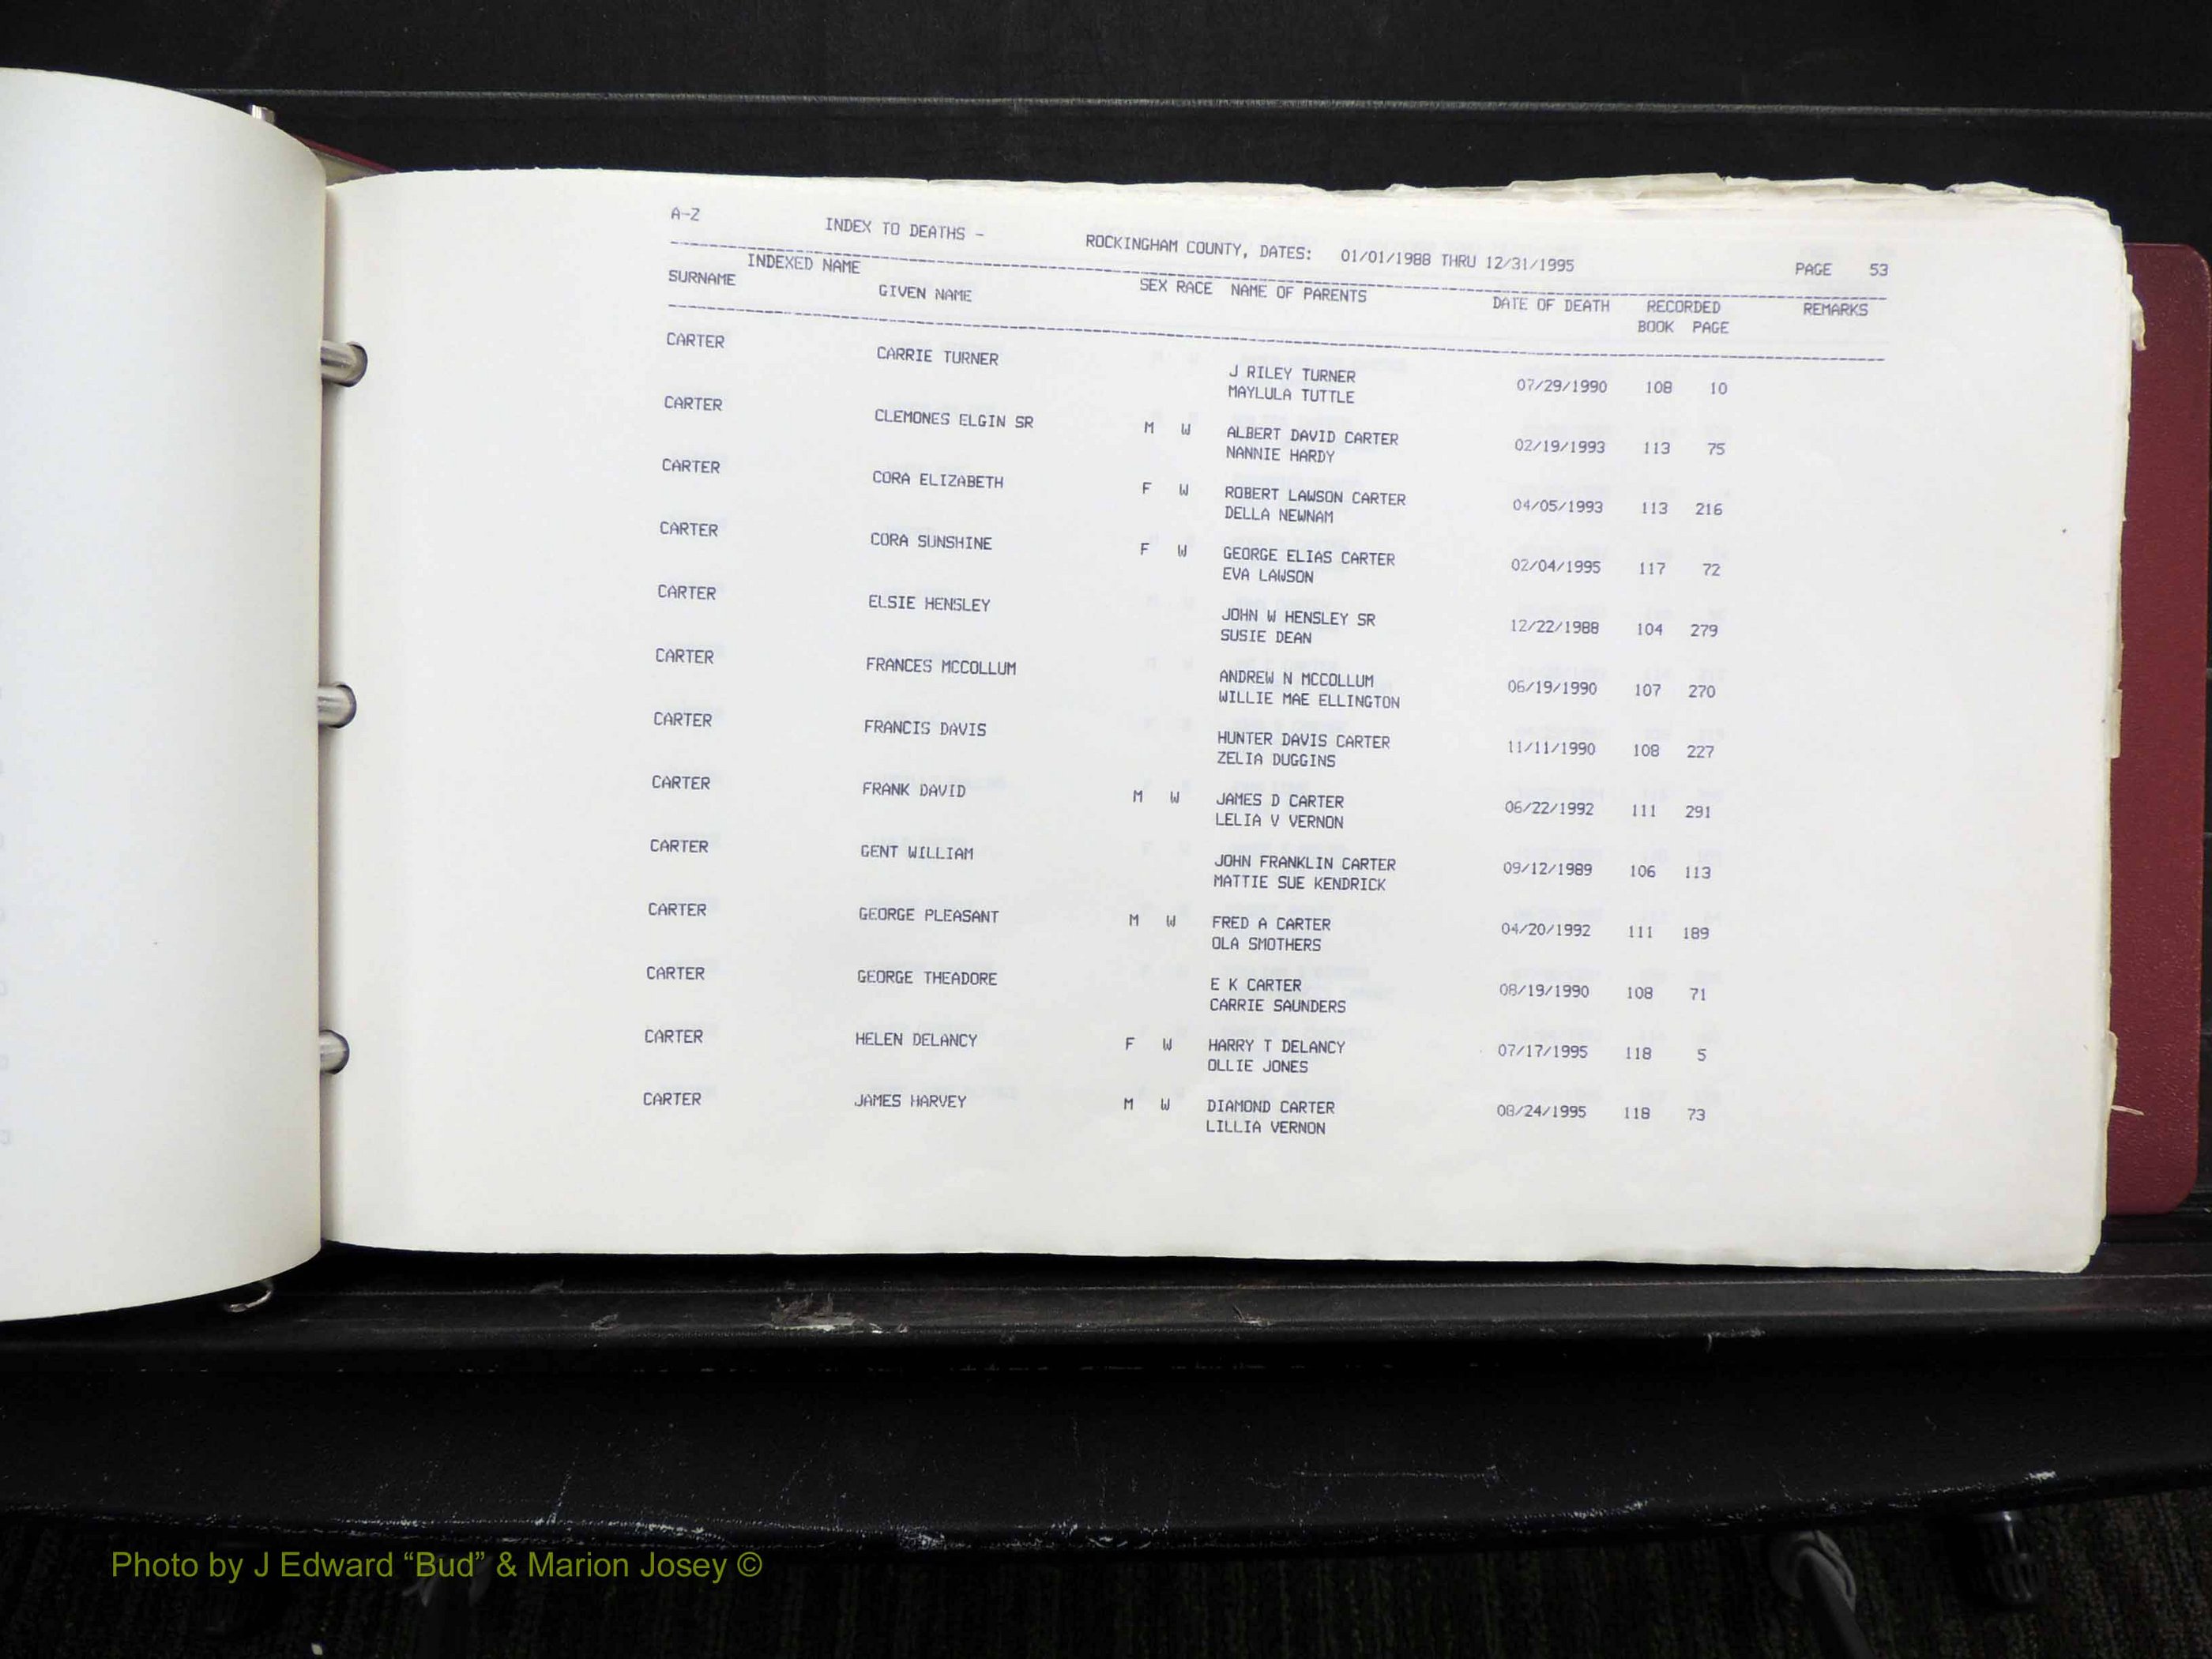 A-Z INDEX TO DEATHS - ROCKINGHAM COUNTY, DATES: 01/01/1988 THRU 12/31/1995 PAGE 53
INDEXED NAME
SURNAME GIVEN NAME SEX RACE NAME OF PARENTS DATE OF DEATH RECORDED REMARKS
BOOK PAGE
CARTER CARRIE TURNER J RILEY TURNER 07/29/1990 108 10
MAYLULA TUTTLE
CARTER CLEMONES ELGIN SR M W ALBERT DAVID CARTER 02/19/1993 113 75
NANNIE HARDY
CARTER CORA ELIZABETH F W ROBERT LAWSON CARTER 04/05/1993 113 216
DELLA NEWNAM
CARTER CORA SUNSHINE F W GEORGE ELIAS CARTER 02/04/1995 117 72
EVA LAWSON
CARTER ELSIE HENSLEY JOHN W HENSLEY SR 12/22/1988 104 279
SUSIE DEAN
CARTER FRANCES MCCOLLUM ANDREW N MCCOLLUM 06/19/1990 107 270
WILLIE MAE ELLINGTON
CARTER FRANCIS DAVIS HUNTER DAVIS CARTER 11/11/1990 108 227
ZELIA DUGGINS
CARTER FRANK DAVID M W JAMES D CARTER 06/22/1992 111 291
LELIA V VERNON
CARTER GENT WILLIAM JOHN FRANKLIN CARTER 09/12/1989 106 113
MATTIE SUE KENDRICK
CARTER GEORGE PLEASANT M W FRED A CARTER 04/20/1992 111 189
OLA SMOTHERS
CARTER GEORGE THEADORE E K CARTER 08/19/1990 108 71
CARRIE SAUNDERS
CARTER HELEN DELANCY F W HARRY T DELANCY 07/17/1995 118 5
OLLIE JONES
CARTER JAMES HARVEY M W DIAMOND CARTER 08/24/1995 118 73
LILLIA VERNON
Photo by J Edward “Bud” & Marion Josey ©